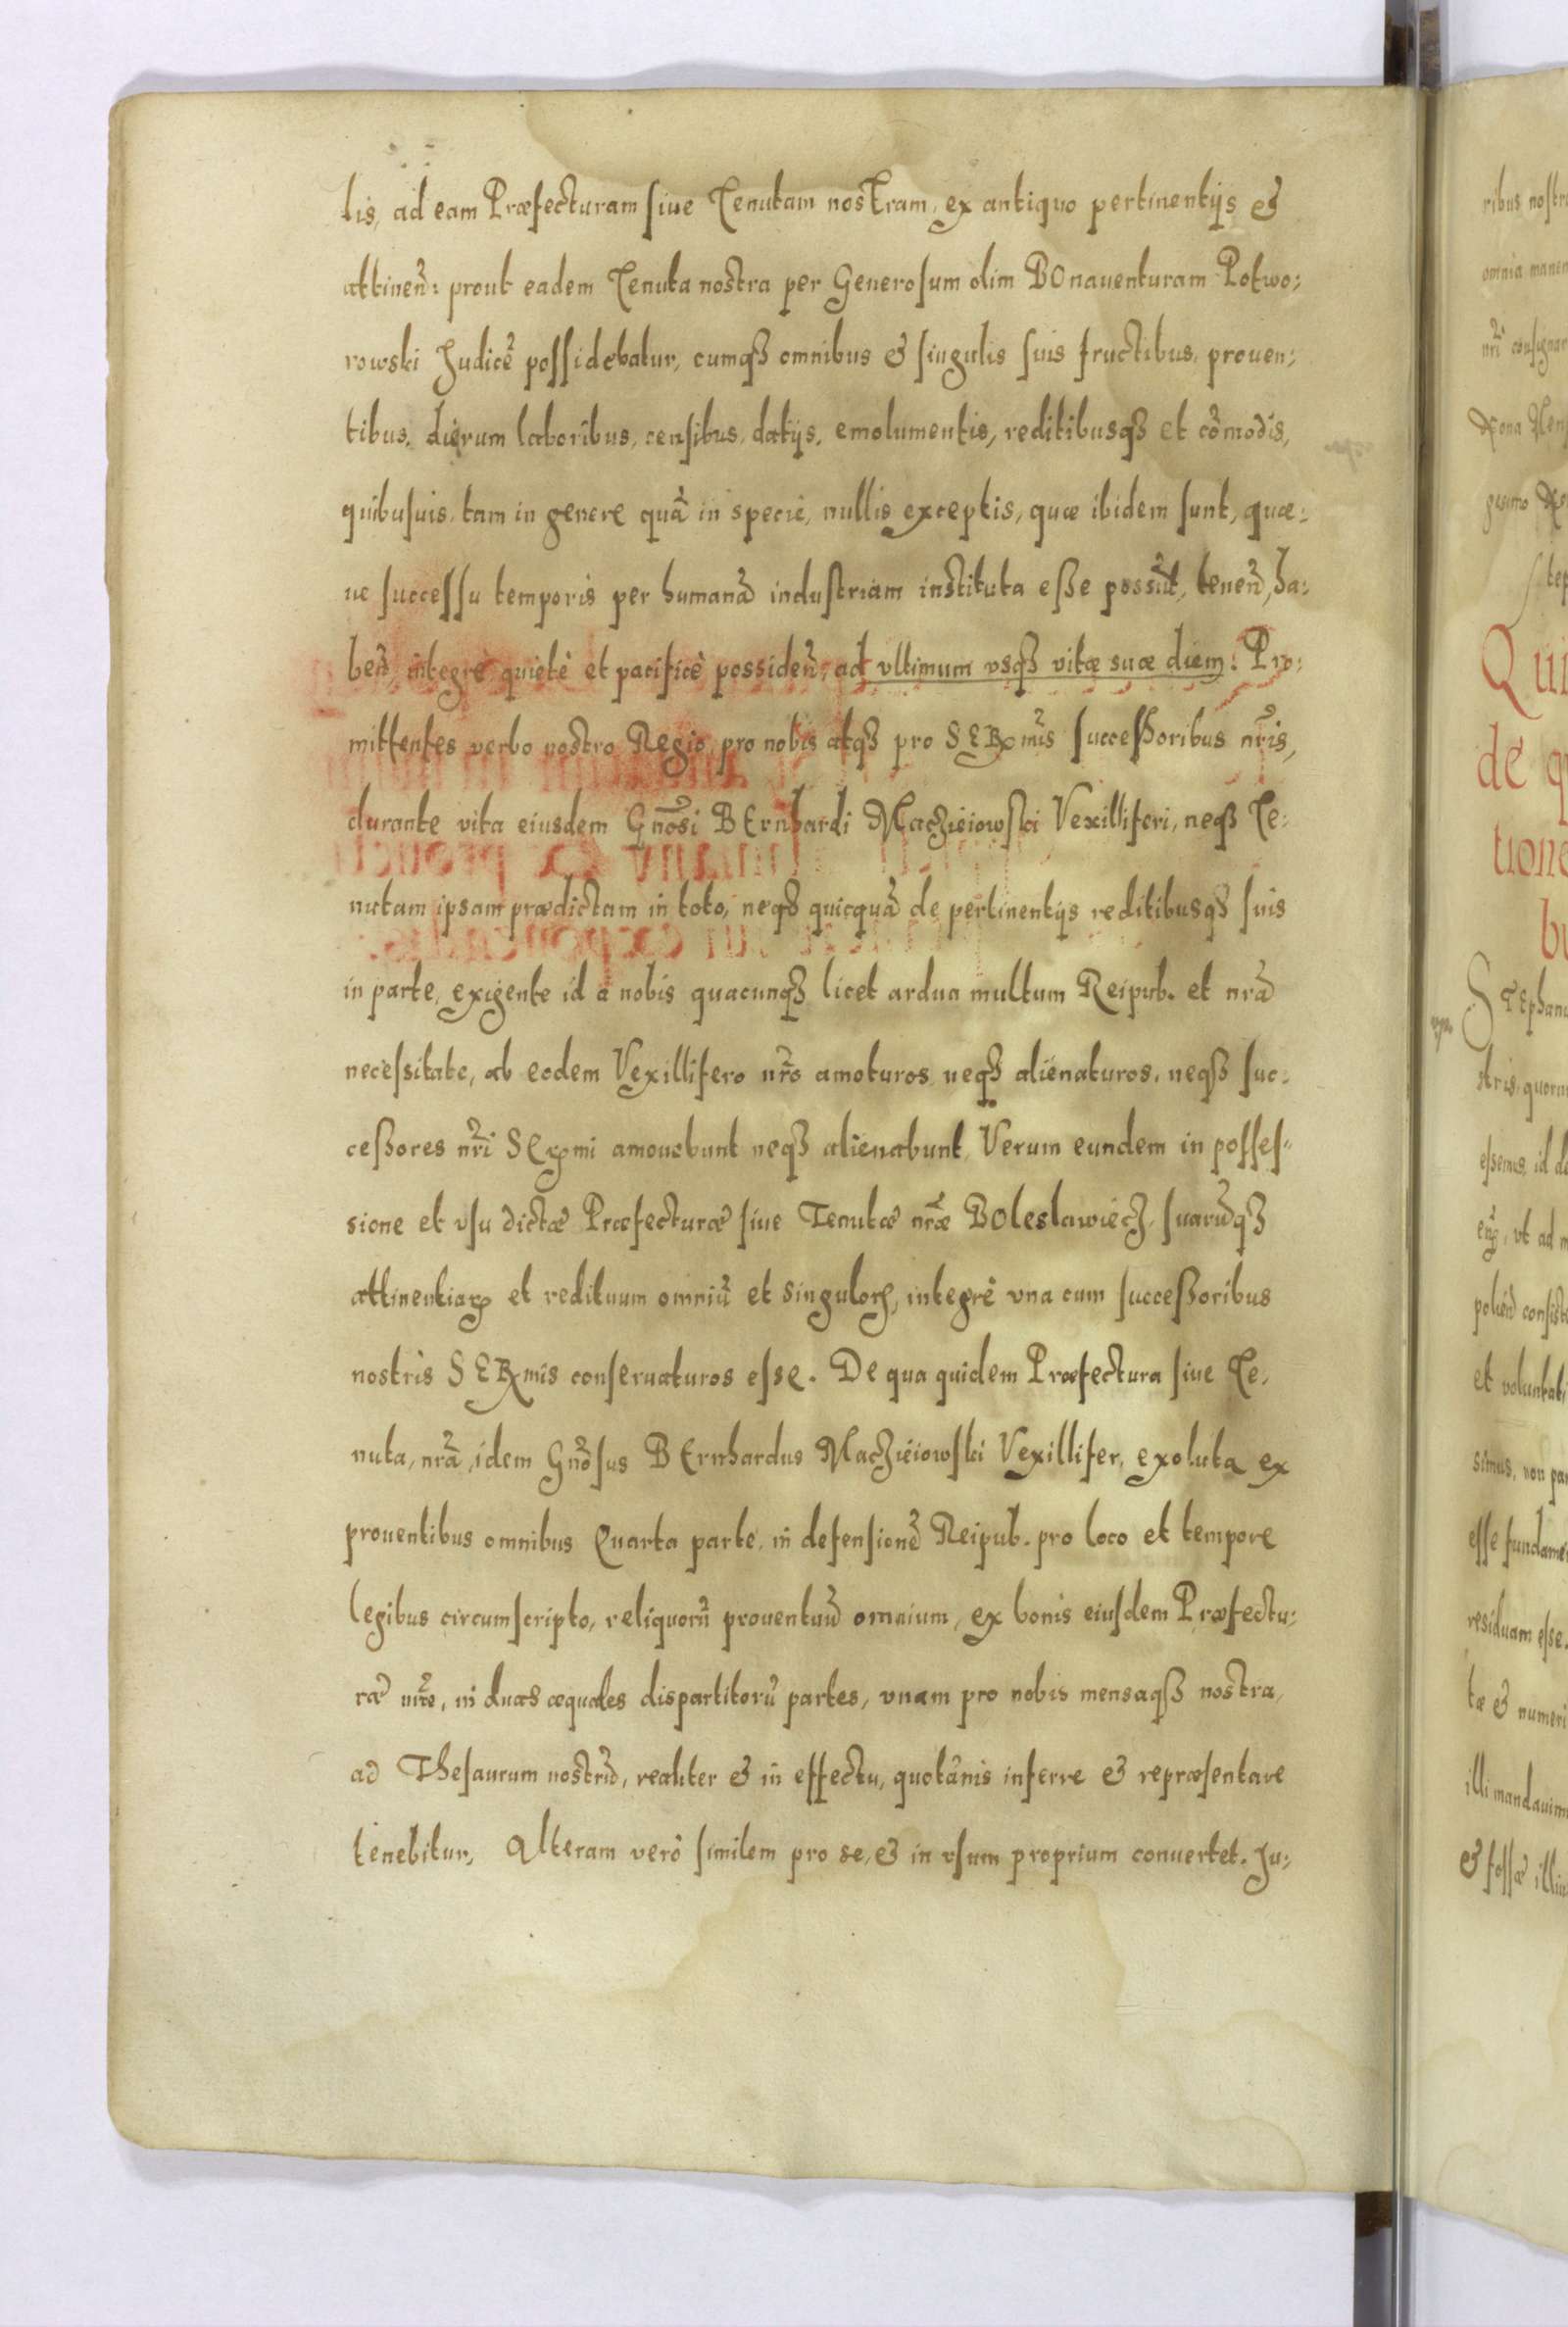 tis, ad eam Præfecturam siue Tenutam nostram, ex antiquo pertinentijs &
attineñ: prout eadem Tenuta nostra per Generosum olim BOnauenturam Potwo:
rowski Judicẽ possidebatur, cumqȝ omnibus & singulis suis fructibus, prouen:
tibus, dierum laboribus, censibus, datijs, emolumentis, reditibusqȝ et cõmodis,
quibusuis, tam in genere quã in specie, nullis exceptis, quæ ibidem sunt, quæ:
ue successu temporis per humanã industriam instituta esse possũt, teneñ, ha:
beñ, integrè quietè et pacificè possideñ, ad vltimum vsqȝ vitæ suæ diem. Pro:
mittentes verbo nostro Regio, pro nobis atqȝ pro SERꝝmis successoribus nr̃is,
durante vita eiusdem Gnõsi BErnhardi Maczieiowski Vexilliferi, neqȝ Te:
nutam ipsam prædictam in toto, neqȝ quicquã de pertinentijs reditibusqȝ suis
in parte, exigente id à nobis quacunqȝ licet ardua multum Reipub. et nrã
necessitate, ab eodem Vexillifero nr̃o amoturos neqȝ alienaturos, neqȝ suc:
cessores nr̃i SEꝝmi amouebunt neqȝ alienabunt, Verum eundem in posses:
sione et vsu dictæ Præfecturæ siue Tenutæ nr̃æ BOleslawiecz, suarũqȝ
attinentiaꝝ et redituum omniũ et singuloꝝ, integrè vna cum successoribus
nostris SERꝝmis conseruaturos esse. De qua quidem Præfectura siue Te:
nuta, nrã, idem Gnõsus BErnhardus Maczieiowski Vexillifer, exoluta ex
prouentibus omnibus Quarta parte, in defensionẽ Reipub. pro loco et tempore
legibus circumscripto, reliquorũ prouentuũ omnium, ex bonis eiusdem Præfectu:
ræ nr̃e, in duas æquales dispartitorũ partes, vnam pro nobis mensaqȝ nostra,
ad Thesaurum nostrũ, realiter & in effectu, quotãnis inferre & repræsentare
tenebitur, Alteram verò similem pro se, & in vsum proprium conuertet. Ju: